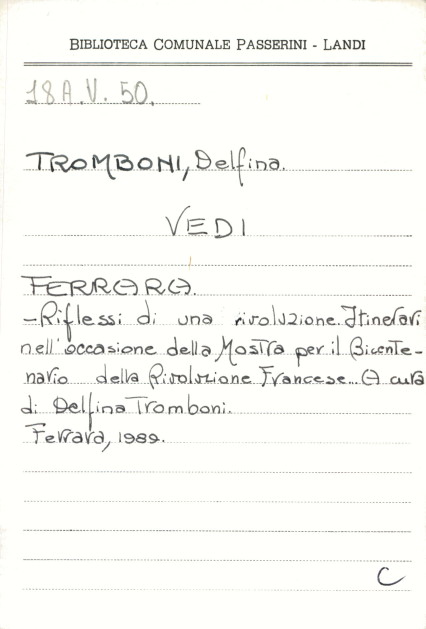 BIBLIOTECA COMUNALE PASSERINI - LANDI
18A.V. 50.
TROMBONI, Delfina.
VEDI
FERRARA.
-Riflessi di una rivoluzione. Itinerari
nell'occasione della Mostra per il Bicente-
nario della Rivoluzione Francese... A cura
di Delfina Tromboni.
Ferrara, 1989.
C